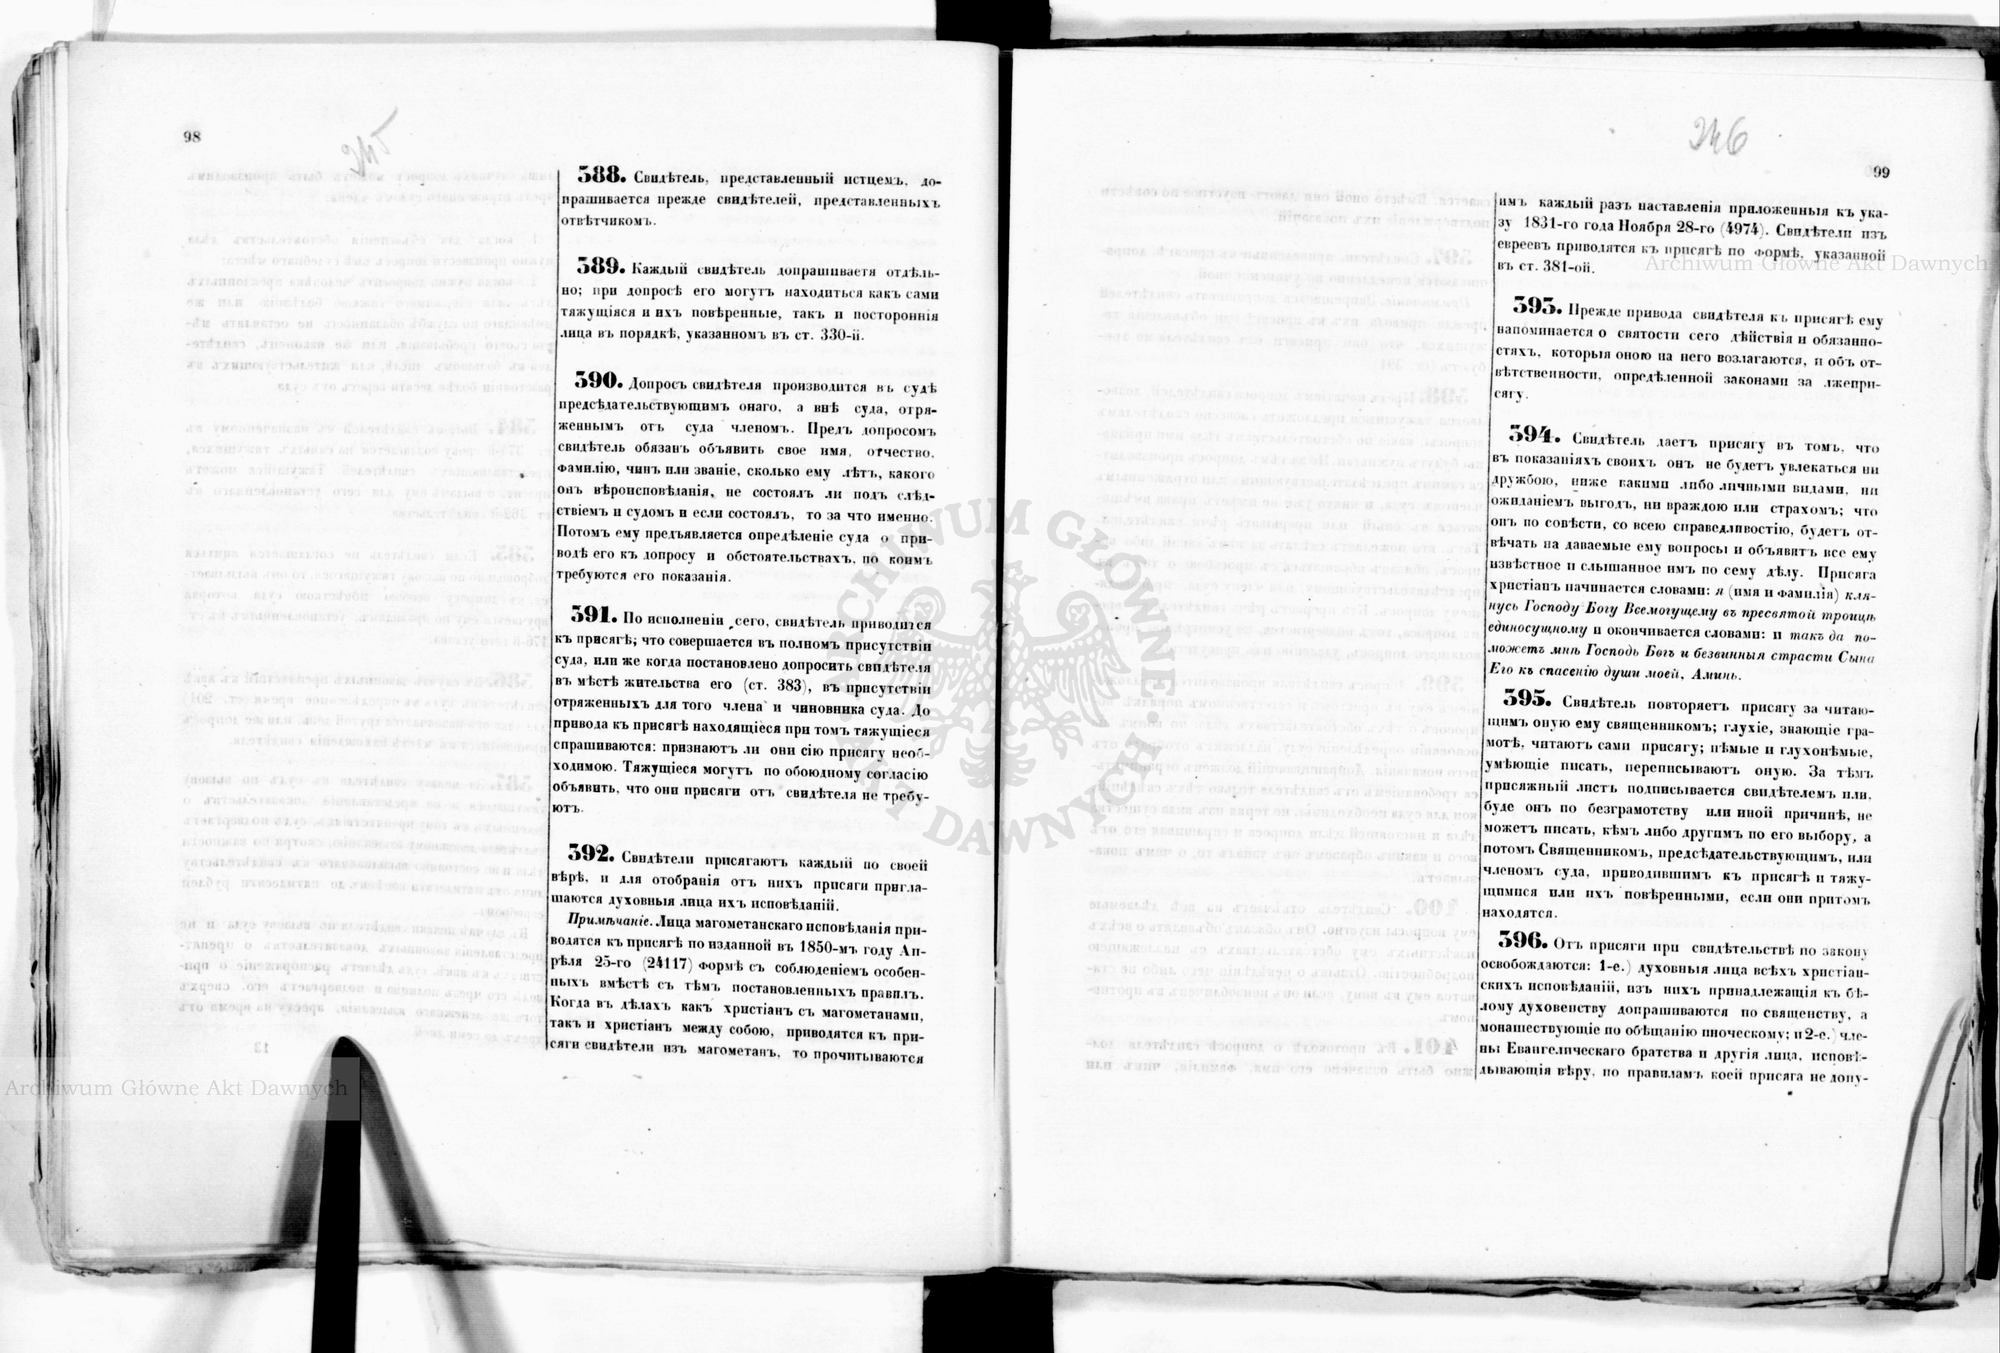 98
245
388. Свидѣтель, представленный истцемъ, до-
прашивается прежде свидѣтелей, представленныхъ
отвѣтчикомъ.
389. Каждый свидѣтель допрашивается отдѣль-
но; при допросѣ его могутъ находиться какъ сами
тяжущіяся и ихъ повѣренные, такъ и постороннія
лица въ порядкѣ, указанномъ въ ст. 330-й.
390. Допросъ свидѣтеля производится въ судѣ
предсѣдательствующимъ онаго, а внѣ суда, отря-
женнымъ отъ суда членомъ. Предъ допросомъ
свидѣтель обязанъ объявить свое имя, отчество,
фамилію, чинъ или званіе, сколько ему лѣтъ, какого
онъ вѣроисповѣданія, не состоялъ ли подъ слѣд-
ствіемъ и судомъ и если состоялъ, то за что именно.
Потомъ ему предъявляется опредѣленіе суда о при-
водѣ его къ допросу и обстоятельствахъ, по коимъ
требуются его показанія.
391. По исполненіи сего, свидѣтель приводится
къ присягѣ; что совершается въ полномъ присутствіи
суда, или же когда постановлено допросить свидѣтеля
въ мѣстѣ жительства его (ст. 383), въ присутствіи
отряженныхъ для того члена и чиновника суда. До
привода къ присягѣ находящіеся при томъ тяжущіеся
спрашиваются: признаютъ ли они сію присягу необ-
ходимою. Тяжущіеся могутъ по обоюдному согласію
объявить, что они присяги отъ свидѣтеля не требу-
ютъ.
392. Свидѣтели присягаютъ каждый по своей
вѣрѣ, и для отобранія отъ нихъ присяги пригла-
шаются духовныя лица ихъ исповѣданій.
Примѣчаніе. Лица магометанскаго исповѣданія при-
водятся къ присягѣ по изданной въ 1850-мъ году Ап-
рѣля 25-го (24117) формѣ съ соблюденіемъ особен-
ныхъ вмѣстѣ съ тѣмъ постановленныхъ правилъ.
Когда въ дѣлахъ какъ христіанъ съ магометанами,
такъ и христіанъ между собою, приводятся къ при-
сяги свидѣтели изъ магометанъ, то прочитываются
246
99
имъ каждый разъ наставленія приложенныя къ ука-
зу 1831-го года Ноября 28-го (4974). Свидѣтели изъ
евреевъ приводятся къ присягѣ по формѣ, указанной
въ ст. 381-ой.
393. Прежде привода свидѣтеля къ присягѣ ему
напоминается о святости сего дѣйствія и обязанно-
стяхъ, которыя оною на него возлагаются, и объ от-
вѣтственности, опредѣленной законами за лжепри-
сягу.
394. Свидѣтель даетъ присягу въ томъ, что
въ показаніяхъ своихъ онъ не будетъ увлекаться ни
дружбою, ниже какими либо личными видами, ни
ожиданіемъ выгодъ, ни враждою или страхомъ; что
онъ по совѣсти, со всею справедливостію, будетъ от-
вѣчать на даваемые ему вопросы и объявитъ все ему
извѣстное и слышанное имъ по сему дѣлу. Присяга
христіанъ начинается словами: я (имя и фамилія) кля-
нусь Господу Богу Всемогущему въ пресвятой троицѣ
единосущному и окончивается словами: и такъ да по-
можетъ мнѣ Господь Богъ и безвинныя страсти Сына
Его къ спасенію души моей, Аминь.
395. Свидѣтель повторяетъ присягу за читаю-
щимъ оную ему священникомъ; глухіе, знающіе гра-
мотѣ, читаютъ сами присягу; нѣмые и глухонѣмые,
умѣющіе писать, переписываютъ оную. За тѣмъ
присяжный листъ подписывается свидѣтелемъ или,
буде онъ по безграмотству или иной причинѣ, не
можетъ писать, кѣмъ либо другимъ по его выбору, а
потомъ Священникомъ, предсѣдательствующимъ, или
членомъ суда, приводившимъ къ присягѣ и тяжу-
щимися или ихъ повѣренными, если они притомъ
находятся.
396. Отъ присяги при свидѣтельствѣ по закону
освобождаются: 1-е.) духовныя лица всѣхъ христіан-
скихъ исповѣданій, изъ нихъ принадлежащія къ бѣ-
лому духовенству допрашиваются по священству, а
монашествующіе по обѣщанію иноческому; и 2-е.) чле-
ны Евангелическаго братства и другія лица, исповѣ-
дывающія вѣру, по правиламъ коей присяга не допу-
ARCHIWUM GŁÓWNE AKT DAWNYCH
Archiwum Główne Akt Dawnych
Archiwum Główne Akt Dawnych